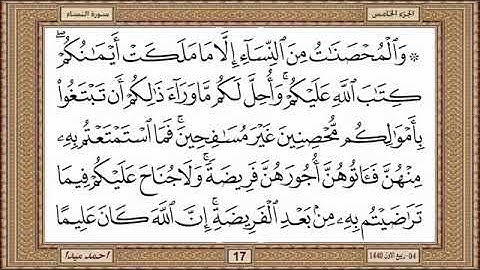 الجزء الخامس
سورة النساء
۞ وَٱلْمُحْصَنَـٰتُ مِنَ ٱلنِّسَآءِ إِلَّا مَا مَلَكَتْ أَيْمَـٰنُكُمْ ۖ
كِتَـٰبَ ٱللَّهِ عَلَيْكُمْ ۚ وَأُحِلَّ لَكُم مَّا وَرَآءَ ذَٰلِكُمْ أَن تَبْتَغُوا۟
بِأَمْوَٰلِكُم مُّحْصِنِينَ غَيْرَ مُسَـٰفِحِينَ ۚ فَمَا ٱسْتَمْتَعْتُم بِهِۦ
مِنْهُنَّ فَـَٔاتُوهُنَّ أُجُورَهُنَّ فَرِيضَةً ۚ وَلَا جُنَاحَ عَلَيْكُمْ فِيمَا
تَرَٰضَيْتُم بِهِۦ مِنۢ بَعْدِ ٱلْفَرِيضَةِ ۚ إِنَّ ٱللَّهَ كَانَ عَلِيمًا
04- ربيع الأول 1440
17
احمد عيدا